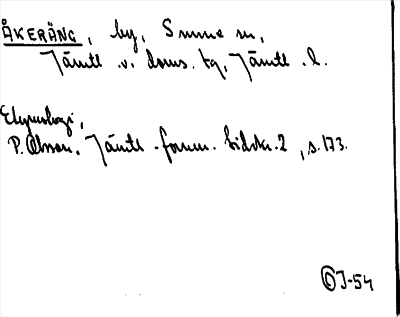 ÅKERÄNG, by, Sunne sn,
Jämtl. v. doms. tg, Jämtl. l.
Etymologi,
P. Olsson. Jämtl. fornm. tidskr. 2, s. 173.
OJ-54